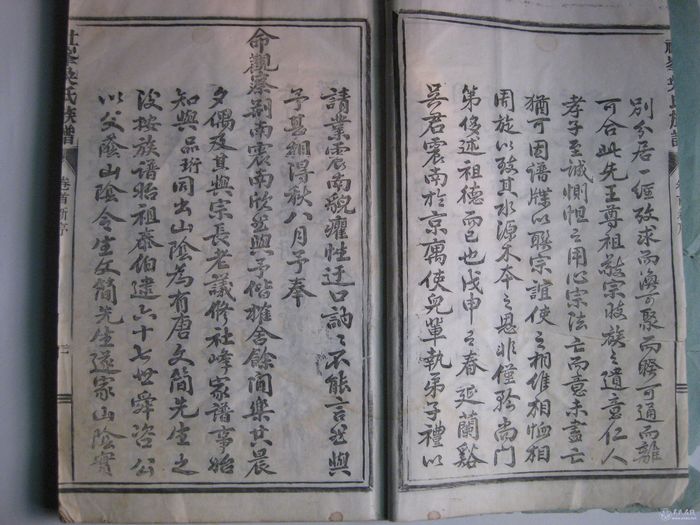 社峯吳氏族譜
別分居一經攷求而渙可聚而睽可通而離
可合此先王尊祖敬宗收族之遺意仁人
孝子至誠惻怛之用心宗法亡而意未盡亡
猶可因譜牒以聯宗誼使之相維相恤相
周旋以致其水源木本之思非僅矜尚門
第侈述祖德而已也戊申之春延蘭谿
吳君震南於京寓使兒輩執弟子禮以
請業震南貌癯性迂口訥〻不能言然與
予甚相得秋八月予奉
命觀察荊南震南欣然與予偕榷舍餘閒樂其晨
夕偶及其與宗長老議修社峰家譜事始
知與品珩同出山陰為有唐文簡先生之
後按族譜始祖泰伯逮六十七世舜咨公
以父蔭山陰令生文簡先生遂家山陰實
社峯吳氏族譜
卷首新序